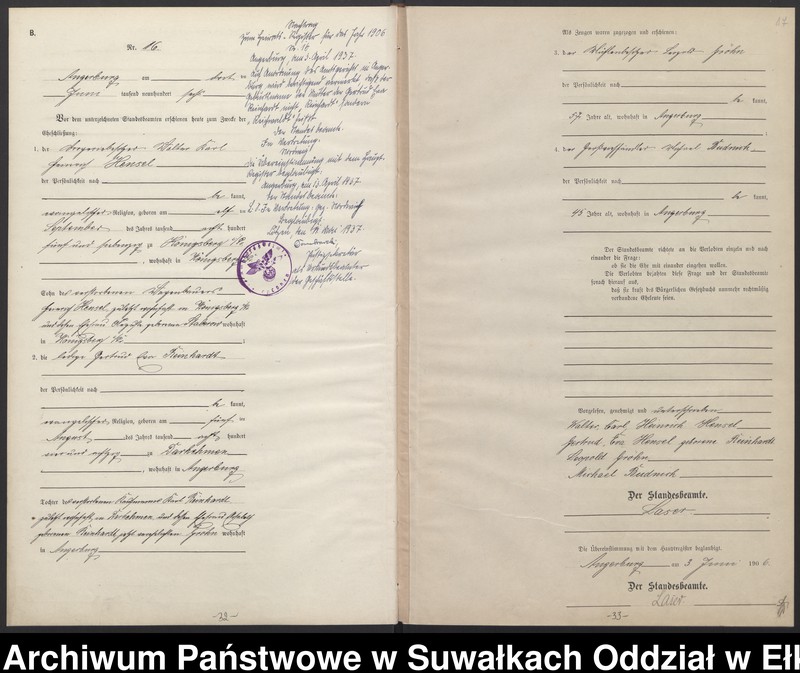 B.
Nr. 16.
Angerburg am
Juni tausend neunhundert sechs
Vor dem unterzeichneten Standesbeamten erschienen heute zum Zwecke der
Eheschließung:
1. der Walter Karl
Heinrich Hensel
der Persönlichkeit nach
be kannt,
evangelischer Religion, geboren am elf ten
September des Jahres tausend acht hundert
fünf und siebenzig zu Königsberg i/Pr
, wohnhaft in Königsberg
Sohn des verstorbenen Wagenbauers
Heinrich Hensel, zuletzt wohnhaft in Königsberg i/Pr
und dessen Ehefrau geborene wohnhaft
in Königsberg i/Pr ;
2. die ledige Gertrud Eva Reinhardt
der Persönlichkeit nach
be kannt,
evangelischer Religion, geboren am fünf ten
August des Jahres tausend acht hundert
vier und achtzig zu Darkehmen
, wohnhaft in Angerburg
Tochter des verstorbenen Kaufmanns Karl Reinhardt
zuletzt wohnhaft in Darkehmen und dessen Ehefrau
geborenen Reinhardt, jetzt verehelichten Gröhn wohnhaft
in Angerburg
-32-
Nachtrag
zum Heirats-Register für das Jahr 1906
Nr. 16
Angerburg, am 3. April 1937.
Auf Anordnung des Amtsgerichts in Anger-
burg wird berichtigend vermerkt, daß der
Geburtsname der Mutter der Gertrud Eva
Reinhardt nicht "Reinhardt" sondern
heißt.
Der Standesbeamte.
In Vertretung.
Die Übereinstimmung mit dem Haupt-
Register beglaubigt.
Angerburg, am 13. April 1937.
Der Standesbeamte.
In Vertretung: gez.
Beglaubigt.
Lötzen, den 1937.
Justizsekretär
als Urkundsbeamter
der Geschäftsstelle.
Als Zeugen waren zugezogen und erschienen:
3. der Mühlenbesitzer Leopold Gröhn
der Persönlichkeit nach
be kannt,
57 Jahre alt, wohnhaft in Angerburg
;
4. der Michael Rudnick
der Persönlichkeit nach
be kannt,
45 Jahre alt, wohnhaft in Angerburg
Der Standesbeamte richtete an die Verlobten einzeln und nach
einander die Frage:
ob sie die Ehe mit einander eingehen wollen.
Die Verlobten bejahten diese Frage und der Standesbeamte
sprach hierauf aus,
daß sie kraft des Bürgerlichen Gesetzbuchs nunmehr rechtmäßig
verbundene Eheleute seien.
Vorgelesen, genehmigt und unterschrieben
Walter, Carl, Heinrich Hensel
Gertrud, Eva Hensel geborene Reinhardt
Leopold Gröhn
Michael Rudnick
Der Standesbeamte.
Laser
Die Übereinstimmung mit dem Hauptregister beglaubigt.
Angerburg am 3. Juni 1906.
Der Standesbeamte.
Laser
-33-
Archiwum Państwowe w Suwałkach Oddział w Ełk